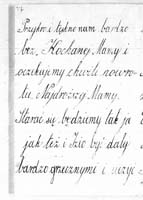 Przykro i tęskno nam bardzo
bez Kochanej Mamy i
oczekujemy chwili powro-
tu Najdroższej Mamy.
Starać się będziemy tak ja
jak też i Izio by dały
bardzo grzecznymi i uczyć